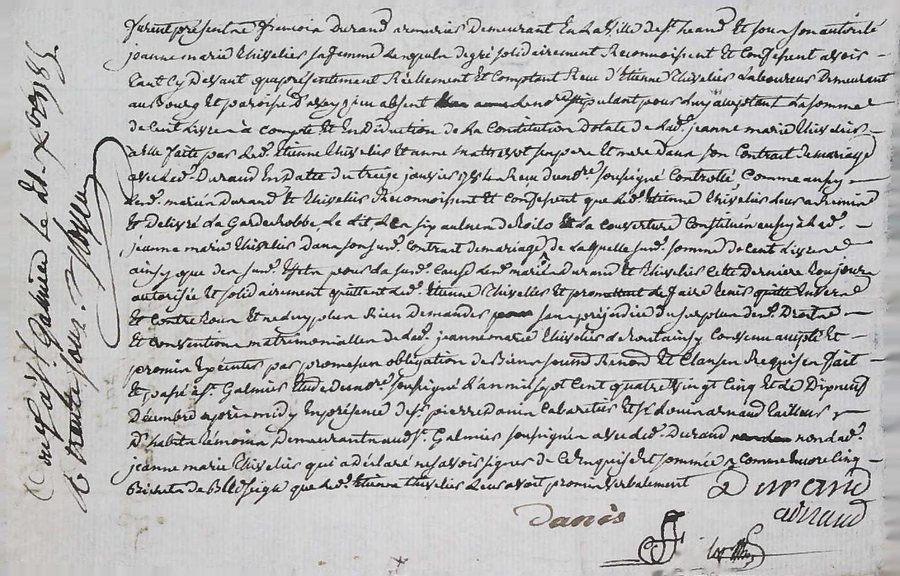 furent présent ne francois Durand armurier Demeurant En La Ville de st heand Et sous son autorité
jeanne marie thivelier sa femme Lesquels degré solidairement Reconnoissent Et Confessent avoir
tant Cy Devant que présentement Réellement Et Comptant Recu d'Etienne thivelier Laboureur Demeurant
au Bourg Et paroisse D'aveyzieu absent le no.re stipulant pour Luy acceptant La somme
de Cent dix à Compte Et En Déduction de La Constitution Dotale de Lad. jeanne marie thivelier
a elle faite par Led. Etienne thivelier Et anne ses pere Et mere dans son Contrat de mariage
avec Led. Durand En Datte du treize janvier Recu du no.re soussigné Controllé Comme aussy
Led. mariés Durand Et thivelier Reconnoissent Et Confessent que Led. Etienne thivelier Leur a Remis
Et Délivré La Garderobbe, Le Lit, Les six aulnes de toile Et La Couverture Constitués aussy à Lad.
jeanne marie thivelier Dans son sus. Contrat de mariage de Laquelle sus. somme de Cent dix
ainsy que des sus. Effets pour La sus. Cause Led. mariés Durand Et thivelier Cette Derniere toujours
autorisée Et solidairement quittent Led. Etienne thivelier Et promettent de faire tenir quitte Envers
Et Contre tous Et ne Luy plus Rien Demander sans préjudice du surplus de Droits
Et Conventions matrimonialles de Lad. jeanne marie thivelier ainsy Convenu accepté Et
promis par promesses obligation de Biens soumis Renond Et Clauses Requises fait
Et passé à st. Galmier Etude du no.re soussigné L'an mil sept Cent quatre vingt Cinq Et Le
Décembre après midy En présence de sr. pierre Danis Cabaretier Et arnaud tailleur
D'habits témoins Demeurant aud. st. Galmier soussignés avec Led. Durand non Lad.
jeanne marie thivelier qui a déclaré ne savoir signer de Ce Enquise Et sommée Comme Encore Cinq
Bichets de Bled seigle que Led. Etienne thivelier Leur avoit promis verbalement
Durand
Danis
arnaud
à st. Galmier le
trente sous.